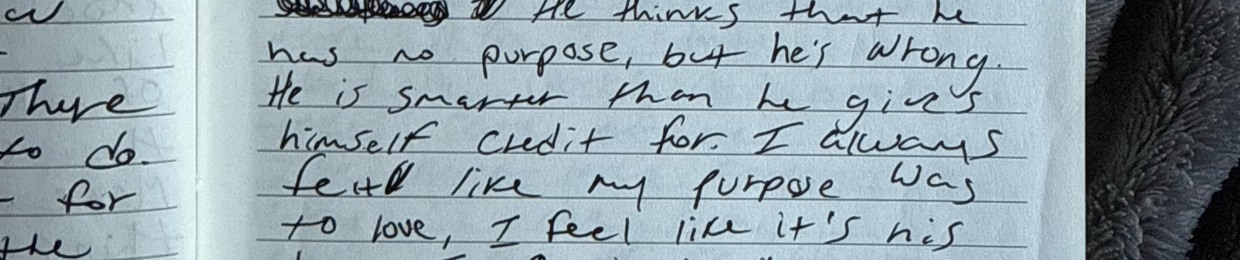 He thinks that he
has no purpose, but he's wrong.
He is smarter than he gives
himself credit for. I always
felt like my purpose was
to love, I feel like it's his
There
to do.
- for
the